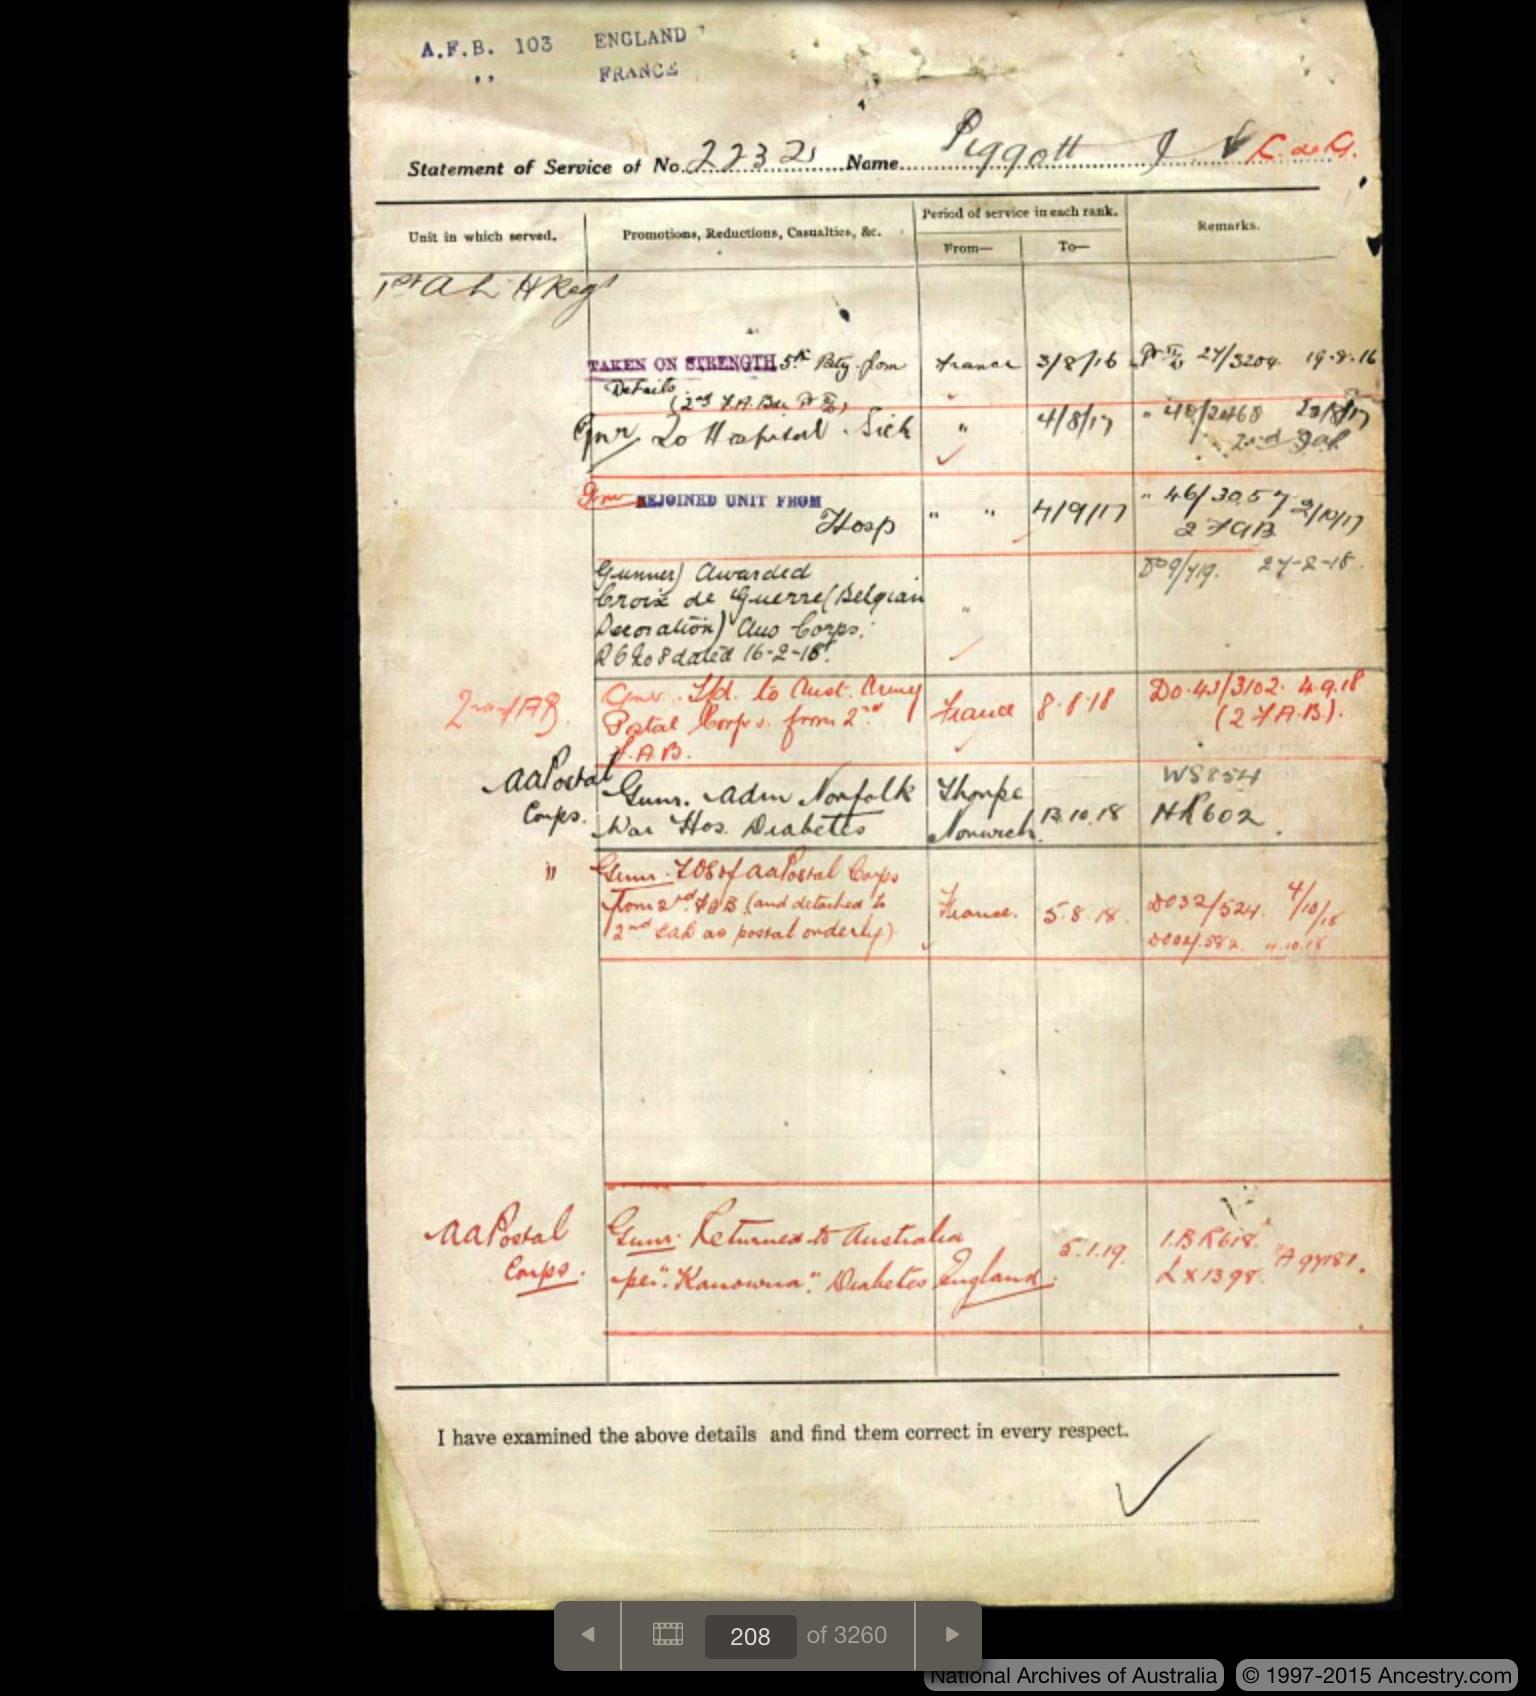 A.F.B. 103 ENGLAND
,, FRANCE
Statement of Service of No. 2232 Name Piggott J C de G.
Unit in which served.
Promotions, Reductions, Casualties, &c.
Period of service in each rank.
From—
To—
Remarks.
1st A L H Regt
TAKEN ON STRENGTH 5th Baty from France 3/8/16 27/3204 19-8-16
Details
(2nd F.A.Bde
Gnr To Hospital Sick " 4/8/17 "
Gnr REJOINED UNIT FROM
Hosp " " 4/9/17 " 46/3057 2/10/17
2 FAB
Gunner) Awarded DO9/719. 27-2-18
Croix de Guerre (Belgian "
Decoration) Corps.
dated 16-2-18.
2nd FAB. Gnr. Tfd. to Aust. Army France 8.8.18 DO.45/3102. 4.9.18
Postal Corps. from 2nd (2 F.A.B.).
F.A.B.
AAPostal Gunr. Adm Norfolk Thorpe WS854
Corps. War Hos. Diabetes Norwich. 13.10.18 HR602.
" Gunr. TOS of AAPostal Corps
from 2nd FAB (and detached to France. 5.8.18. DO32/524. 4/10/18
2nd as postal orderly) 11.10.18
AAPostal Gunr. Returned to Australia 5.1.19. A97181.
Corps. per "Kanowna". Diabetes England. LX1398.
I have examined the above details and find them correct in every respect.
208 of 3260
National Archives of Australia © 1997-2015 Ancestry.com